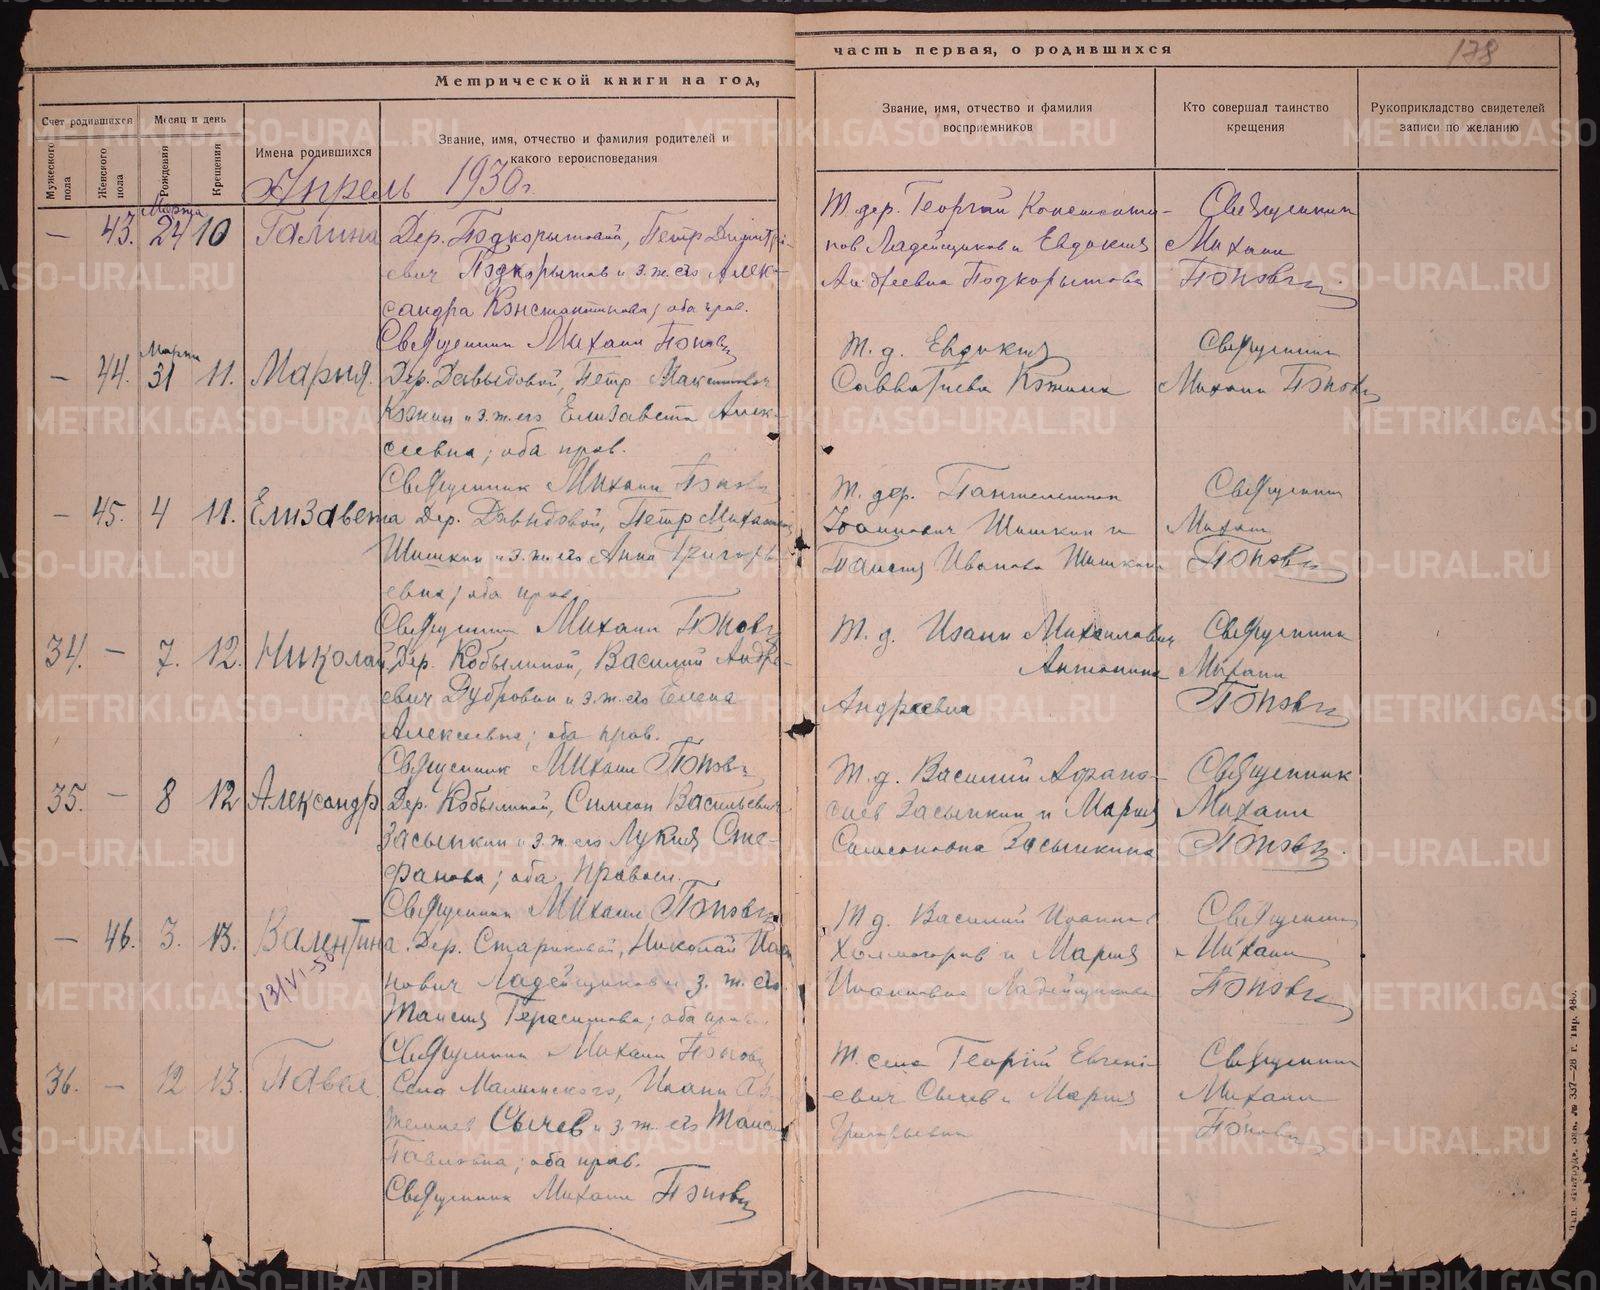 178
Метрической книги на год,
часть первая, о родившихся
Счет родившихся
Мужеского пола
Женского пола
Месяц и день
Рождения
Крещения
Имена родившихся
Звание, имя, отчество и фамилия родителей и
какого вероисповедания
Звание, имя, отчество и фамилия
восприемников
Кто совершал таинство
крещения
Рукоприкладство свидетелей
записи по желанию
Апрель 1930 г.
— 43. Марта 24 10 Галина
Дер. Подкорытовой, Петр Димитри-
евич Подкорытов и з. ж. его Алек-
сандра Константинова; оба прав.
Священник Михаил Попов
Т. дер. Георгий Константи-
нов Ладейщиков и Евдокия
Андреевна Подкорытова
Священник
Михаил
Попов
— 44. Марта 31 11. Мария.
Дер. Давыдовой, Петр Максимович
Кожин и з. ж. его Елизавета Алек-
сеевна; оба прав.
Священник Михаил Попов
Т. д. Евдокия
Савватиева Кожина
Священник
Михаил Попов
— 45. 4 11. Елизавета
Дер. Давыдовой, Петр Михаилович
Шишкин и з. ж. его Анна Григорь-
евна; оба прав
Священник Михаил Попов
Т. дер. Пантелеимон
Иоаннович Шишкин и
Таисия Иванова Шишкина
Священник
Михаил
Попов
34. — 7. 12. Николай
Дер. Кобылиной, Василий Андре-
евич Дубровин и з. ж. его Елена
Алексеевна; оба прав.
Священник Михаил Попов
Т. д. Иоанн Михаилович
Антонина
Андреевна
Священник
Михаил
Попов
35. — 8 12 Александр
Дер. Кобылиной, Симеон Васильевич
Засыпкин и з. ж. его Лукия Сте-
фанова; оба Правосл.
Священник Михаил Попов
Т. д. Василий Афана-
сиев Засыпкин и Мария
Самсоновна Засыпкина
Священник
Михаил
Попов
— 46. 3. 13. Валентина
13/VI-56
Дер. Стариковой, Николай Иоан
нович Ладейщиков и з. ж. его
Таисия Герасимова; оба прав.
Священник Михаил Попов
Т д. Василий Иоаннов
Холмогоров и Мария
Иоанновна Ладейщикова
Священник
Михаил
Попов
36. — 12 13. Павел
Села Маминского, Иоанн Ар-
темиев Сычев и з. ж. его Таисия
Павловна; оба прав.
Священник Михаил Попов
Т. села Георгий Евгени-
евич Сычев и Мария
Григорьевна
Священник
Михаил
Попов
METRIKI.GASO-URAL.RU